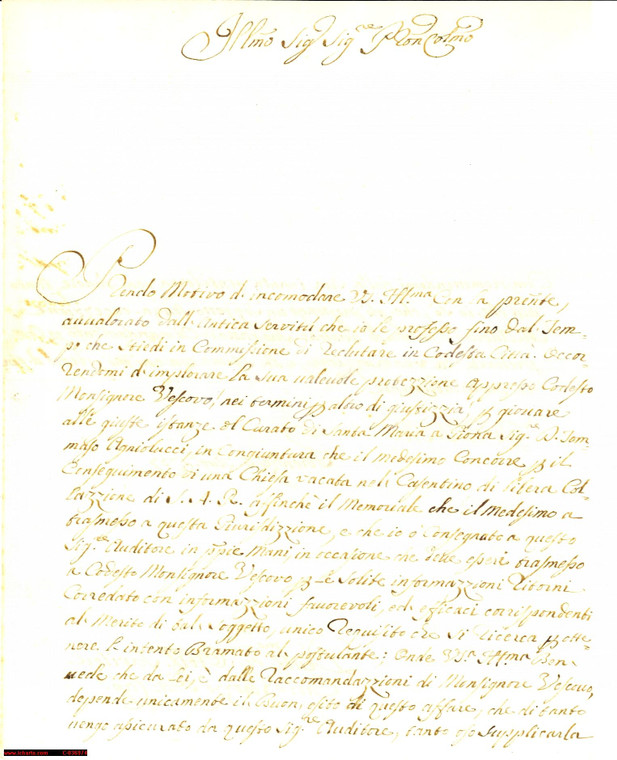 Illmo Sig Sig.re Pron Colmo
Prendo Motivo d. Incomodare VS. Ill.ma Con la pnte,
avvalorato dall'Antica Servitù che io le professo fino dal Tem-
po che stiedi in Commissione di Reclutare in Codesta Città. Occor-
rendomi d'implorare La Sua valevole protezzione appresso Codesto
Monsignore Vescovo, nei termini però di giustizzia, p giovare
alle giuste istanze del Curato di Santa Maria a Sig.re D. Tom-
maso Agniolucci, in Congiuntura che il Medesimo Concorre p il
Conseguimento di una Chiesa vacata nel Casentino di libera Col-
lazzione di S. A. R. affinchè il Memoriale che il Medesimo a
trasmesso a questa Giuridizzione, e che io ò Consegnato a questo
Sig.re Auditore in pprie Mani, in occasione che deve essere trasmesso
a Codesto Monsignore Vescovo p le Solite informazzioni Ritorni
Corredato con informazzioni favorevoli, ed efficaci corrispondenti
al Merito di tal Soggetto, unico Requisito che si ricerca p otte-
nere l'intento Bramato al postulante; Onde VS. Ill.ma Ben
vede che da Lei, è dalle Raccomandazzioni di Monsignore Vescovo,
depende unicamente il Buon esito di questo affare, che di tanto
vengo assicurato da questo Sig.re Auditore, tanto oso Supplicarla
www.lobarta.com